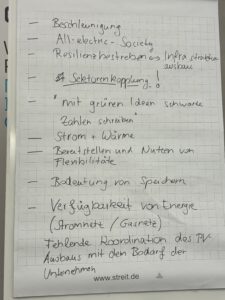 — Beschleunigung
— All-electric-Society
— Resilienzbestreben Infrastruktur
ausbau
— Sektorenkopplung !
— "mit grünen Ideen schwarze
Zahlen schreiben"
— Strom + Wärme
— Bereitstellen und Nutzen von
Flexibilitäte
— Bedeutung von Speichern
— Verfügbarkeit von Energie
(Stromnetz / Gasnetz)
— Fehlende Koordination des PV-
Ausbaus mit dem Bedarf der
Unternehmen
www.streit.de